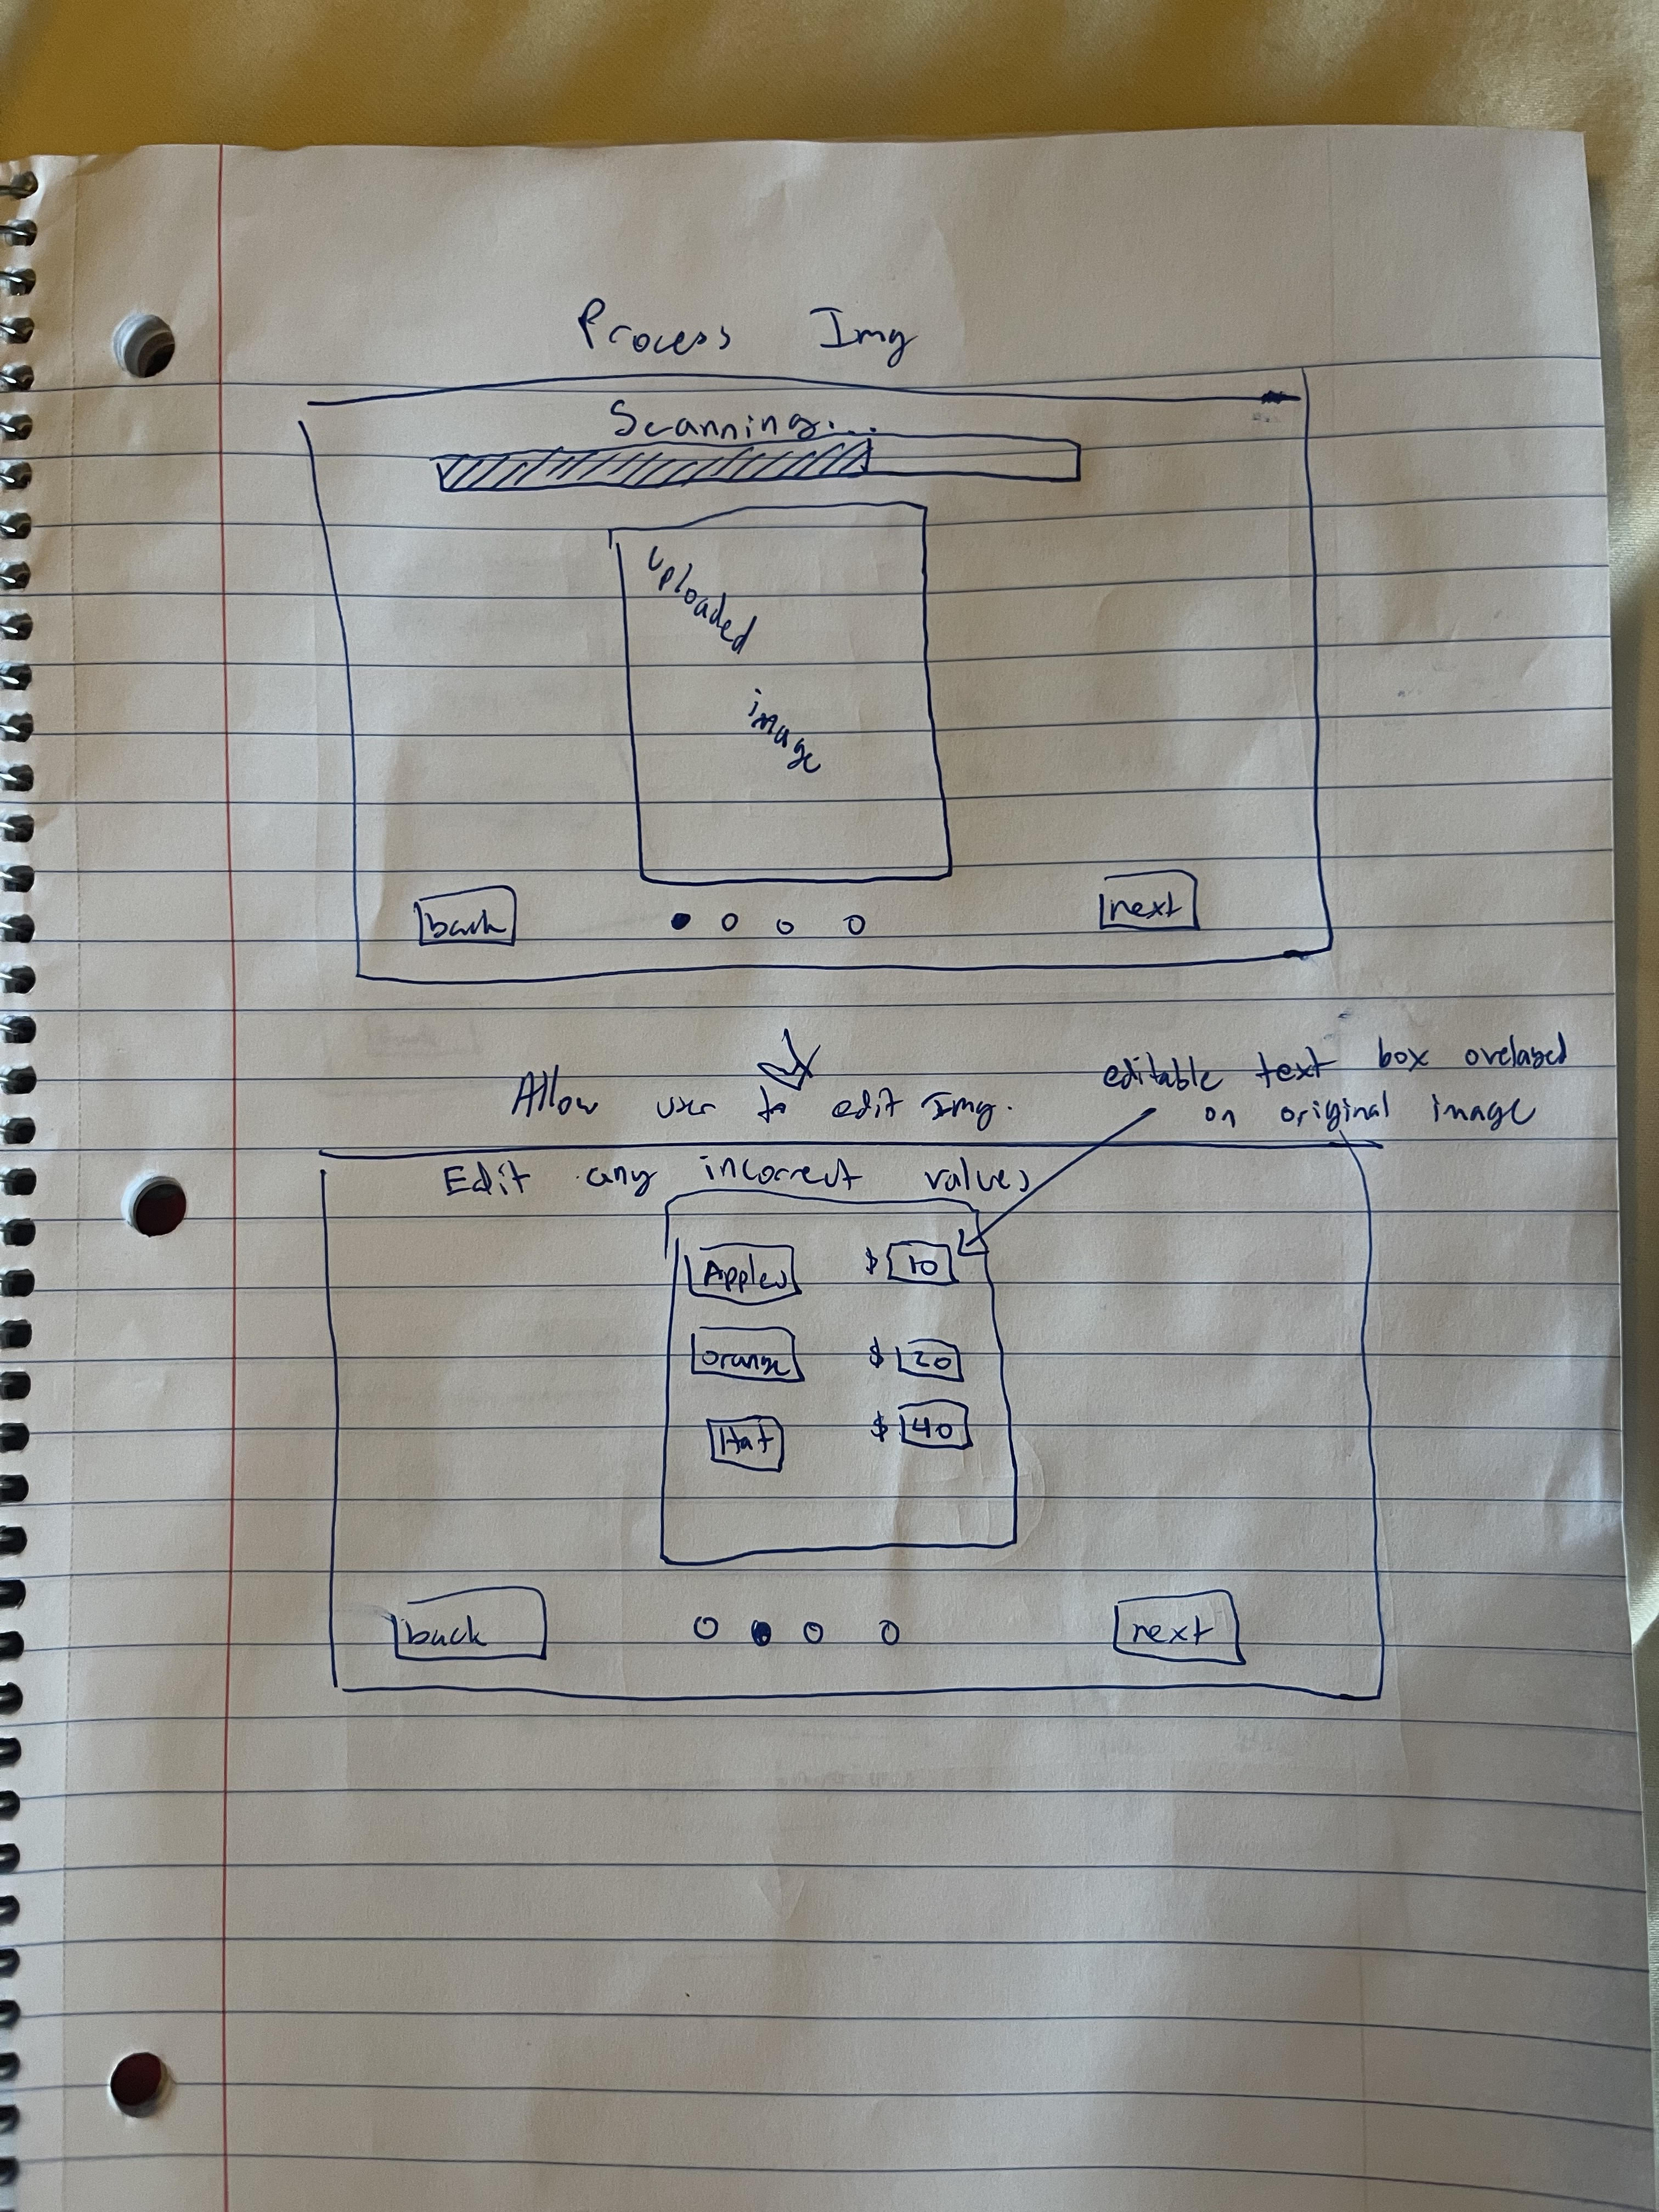 Process Img
Scanning...
Uploaded
image
back
next
Allow user to edit Img.
editable text box overlayed
on original image
Edit any incorrect values
Apples $ 10
orange $ 20
Hat $ 40
back
next